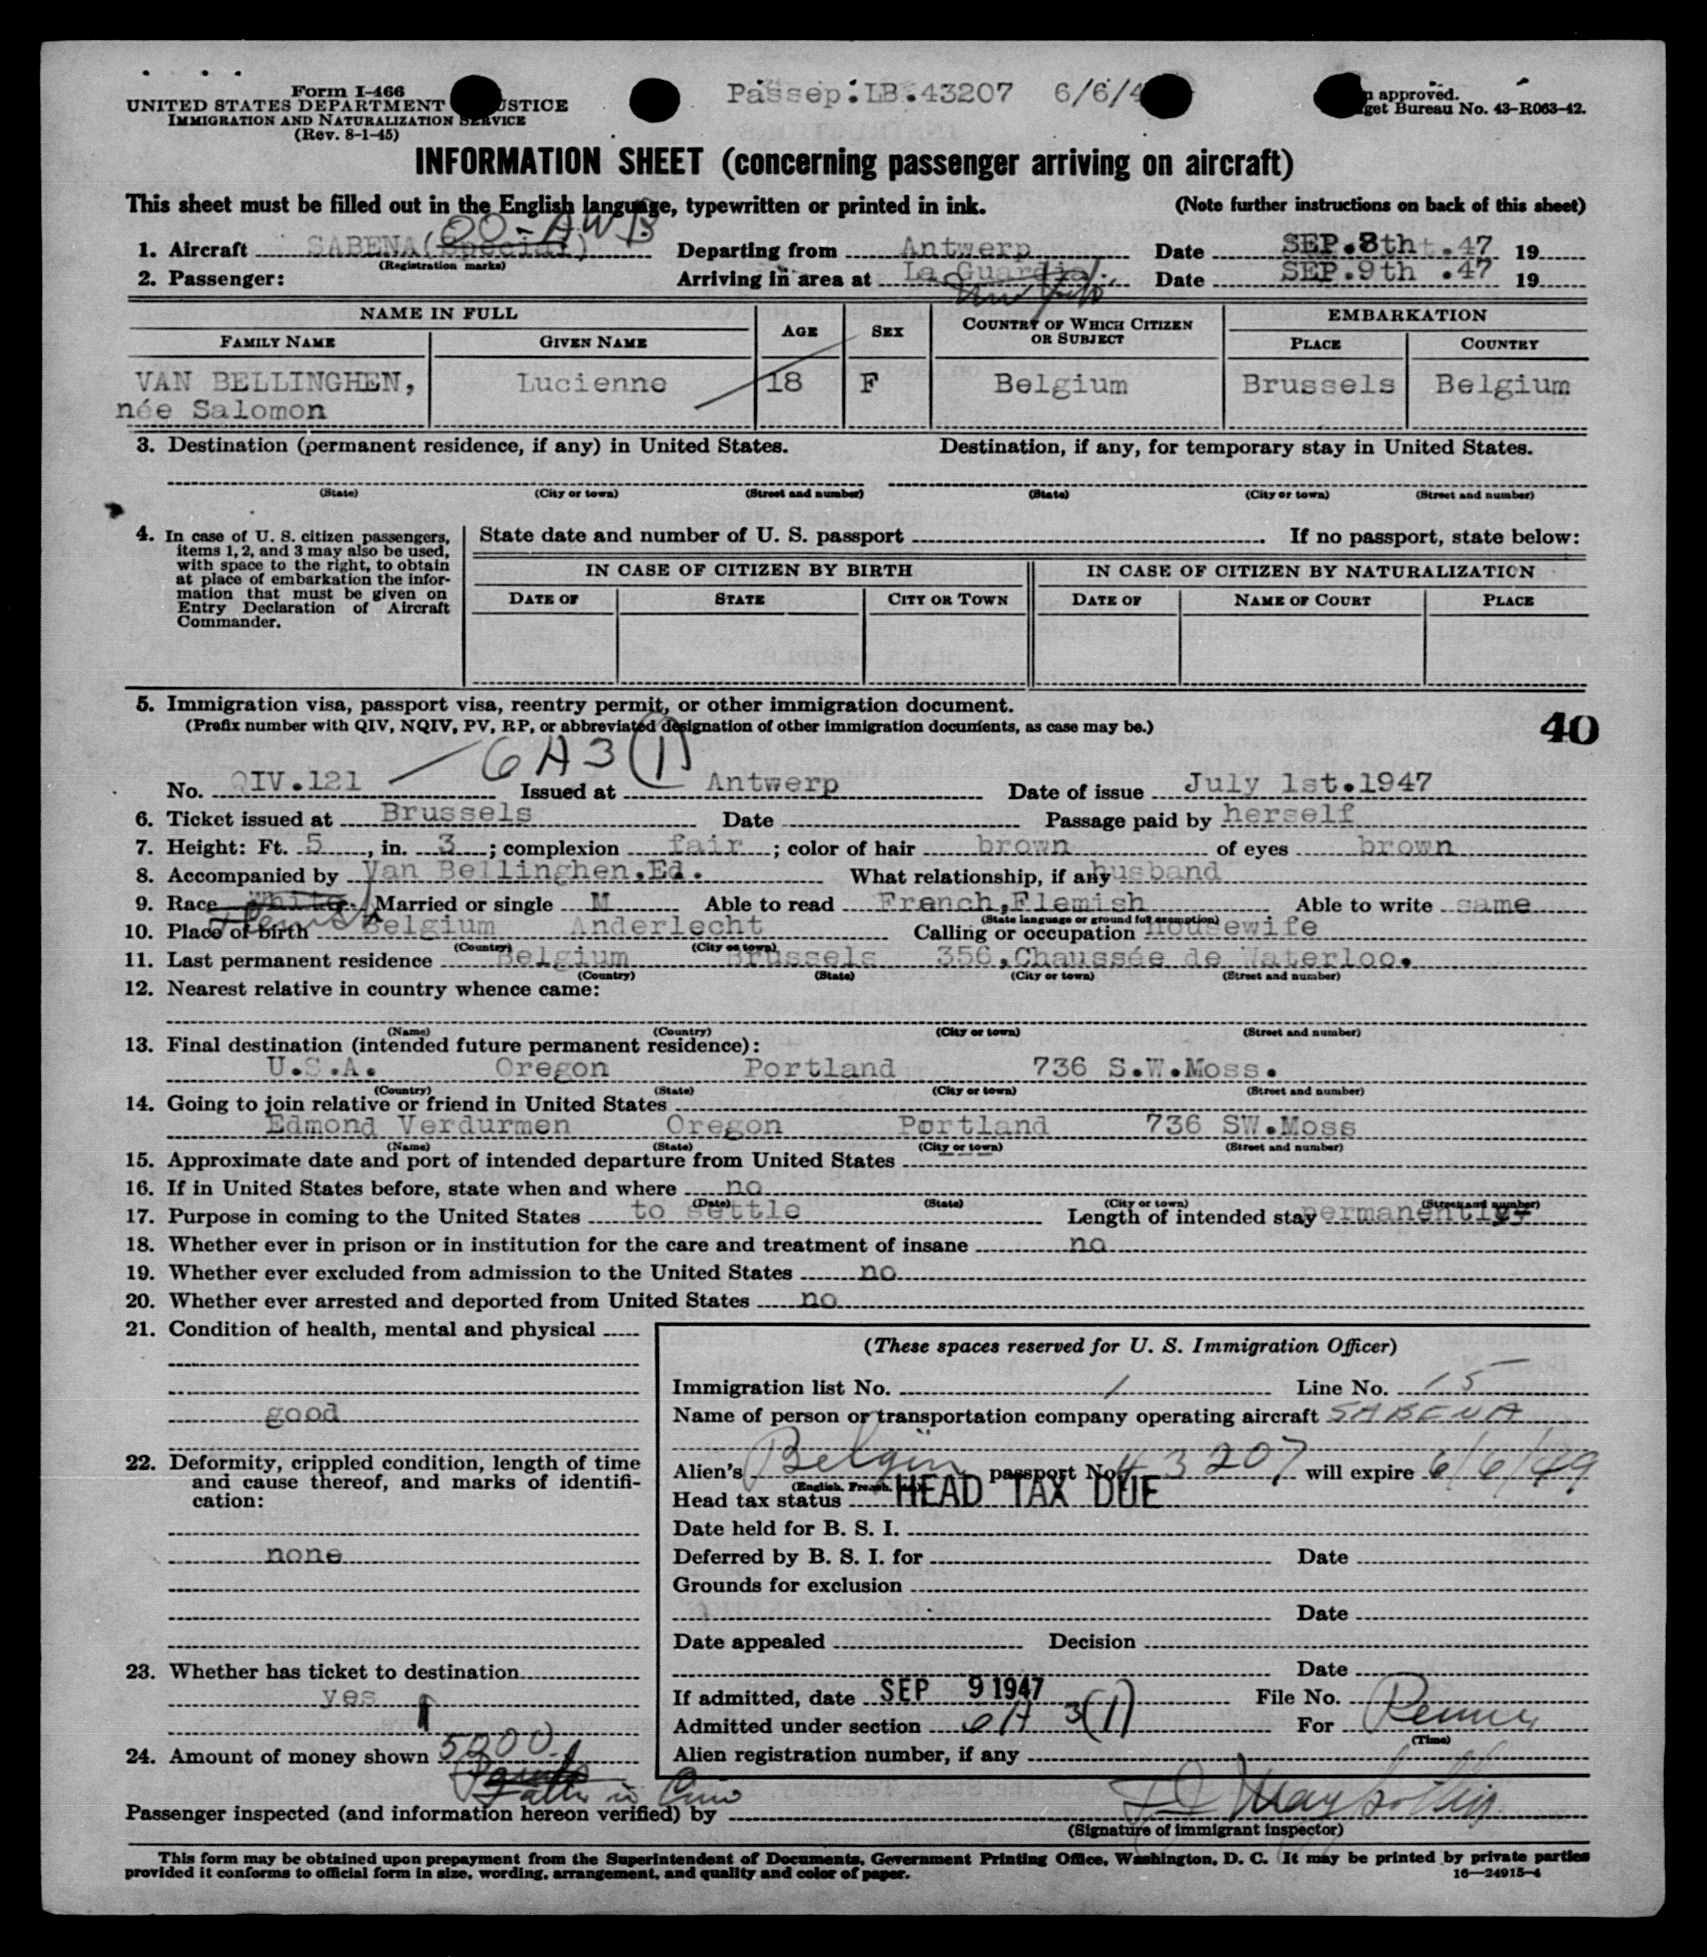 Form I-466
UNITED STATES DEPARTMENT JUSTICE
IMMIGRATION AND NATURALIZATION SERVICE
(Rev. 8-1-45)
Passep:LB.43207 6/6/4
approved.
get Bureau No. 43-R063-42.
INFORMATION SHEET (concerning passenger arriving on aircraft)
This sheet must be filled out in the English language, typewritten or printed in ink. (Note further instructions on back of this sheet)
OO-AWB
1. Aircraft SABENA(Special) Departing from Antwerp Date SEP.8tht.47 19
(Registration marks)
2. Passenger: Arriving in area at La Guardia. Date SEP.9th .47 19
New York
NAME IN FULL AGE SEX COUNTRY OF WHICH CITIZEN OR SUBJECT EMBARKATION
FAMILY NAME GIVEN NAME PLACE COUNTRY
VAN BELLINGHEN, Lucienne 18 F Belgium Brussels Belgium
née Salomon
3. Destination (permanent residence, if any) in United States. Destination, if any, for temporary stay in United States.
(State) (City or town) (Street and number) (State) (City or town) (Street and number)
4. In case of U. S. citizen passengers, items 1, 2, and 3 may also be used, with space to the right, to obtain at place of embarkation the information that must be given on Entry Declaration of Aircraft Commander.
State date and number of U. S. passport If no passport, state below:
IN CASE OF CITIZEN BY BIRTH IN CASE OF CITIZEN BY NATURALIZATION
DATE OF STATE CITY OR TOWN DATE OF NAME OF COURT PLACE
5. Immigration visa, passport visa, reentry permit, or other immigration document.
(Prefix number with QIV, NQIV, PV, RP, or abbreviated designation of other immigration documents, as case may be.)
40
6A3(1)
No. QIV.121 Issued at Antwerp Date of issue July 1st.1947
6. Ticket issued at Brussels Date Passage paid by herself
7. Height: Ft. 5, in. 3; complexion fair; color of hair brown of eyes brown
8. Accompanied by Van Bellinghen.Ed. What relationship, if any husband
9. Race White Married or single M Able to read French,Flemish Able to write same
Flemish
(State language or ground for exemption)
10. Place of birth Belgium Anderlecht Calling or occupation Housewife
(Country) (City or town)
11. Last permanent residence Belgium Brussels 356,Chaussée de Waterloo.
(Country) (State) (City or town) (Street and number)
12. Nearest relative in country whence came:
(Name) (Country) (City or town) (Street and number)
13. Final destination (intended future permanent residence):
U.S.A. Oregon Portland 736 S.W.Moss.
(Country) (State) (City or town) (Street and number)
14. Going to join relative or friend in United States
Edmond Verdurmen Oregon Portland 736 SW.Moss
(Name) (State) (City or town) (Street and number)
15. Approximate date and port of intended departure from United States
16. If in United States before, state when and where no
(Date) (State) (City or town) (Street and number)
17. Purpose in coming to the United States to settle Length of intended stay permanently
18. Whether ever in prison or in institution for the care and treatment of insane no
19. Whether ever excluded from admission to the United States no
20. Whether ever arrested and deported from United States no
21. Condition of health, mental and physical
good
22. Deformity, crippled condition, length of time and cause thereof, and marks of identification:
none
23. Whether has ticket to destination
yes
24. Amount of money shown 5000
Father in
(These spaces reserved for U. S. Immigration Officer)
Immigration list No. 1 Line No. 15
Name of person or transportation company operating aircraft SABENA
Alien's Belgium passport No. 43207 will expire 6/6/49
(English, French, etc.)
Head tax status HEAD TAX DUE
Date held for B. S. I.
Deferred by B. S. I. for Date
Grounds for exclusion
Date
Date appealed Decision
Date
If admitted, date SEP 9 1947 File No.
Admitted under section 6A 3(1) For Perm
(Time)
Alien registration number, if any
Passenger inspected (and information hereon verified) by
(Signature of immigrant inspector)
This form may be obtained upon prepayment from the Superintendent of Documents, Government Printing Office, Washington, D. C. It may be printed by private parties
provided it conforms to official form in size, wording, arrangement, and quality and color of paper. 16—24915-4